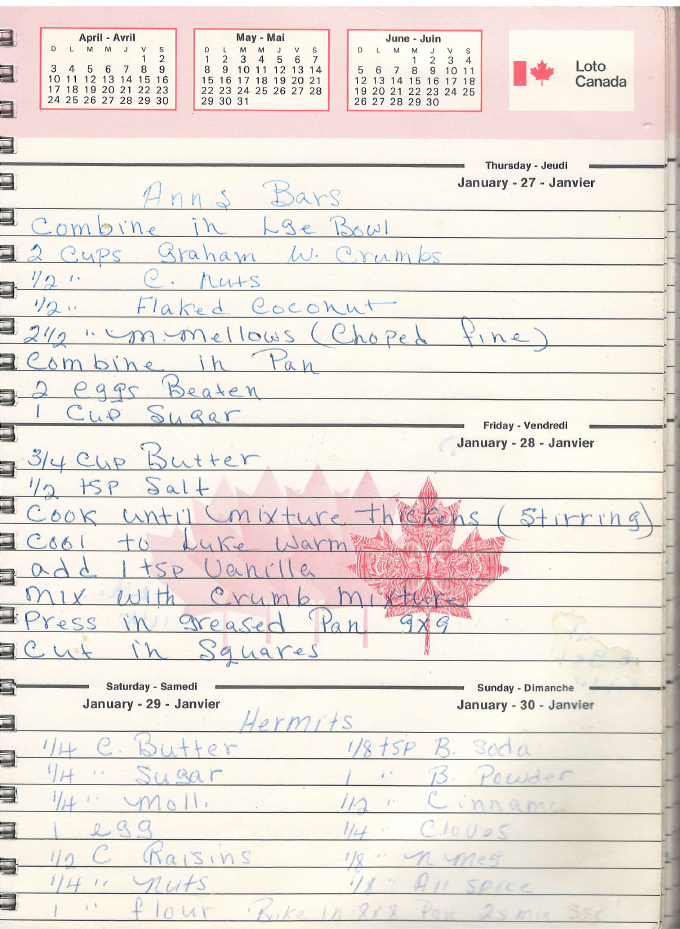 April - Avril
D L M M J V S
1 2
3 4 5 6 7 8 9
10 11 12 13 14 15 16
17 18 19 20 21 22 23
24 25 26 27 28 29 30
May - Mai
D L M M J V S
1 2 3 4 5 6 7
8 9 10 11 12 13 14
15 16 17 18 19 20 21
22 23 24 25 26 27 28
29 30 31
June - Juin
D L M M J V S
1 2 3 4
5 6 7 8 9 10 11
12 13 14 15 16 17 18
19 20 21 22 23 24 25
26 27 28 29 30
Loto
Canada
Thursday - Jeudi
January - 27 - Janvier
Anns Bars
Combine in Lge Bowl
2 Cups Graham W. Crumbs
1/2 " C. Nuts
1/2 " Flaked Coconut
2 1/2 " M. Mellows (Choped fine)
Combine in Pan
2 eggs Beaten
1 Cup Sugar
Friday - Vendredi
January - 28 - Janvier
3/4 Cup Butter
1/2 tsp Salt
Cook until mixture thickens (Stirring)
Cool to Luke Warm
add 1 tsp Vanilla
Mix with Crumb Mixture
Press in greased Pan 9x9
Cut in Squares
Saturday - Samedi
January - 29 - Janvier
Sunday - Dimanche
January - 30 - Janvier
Hermits
1/4 C. Butter 1/8 tsp B. Soda
1/4 " Sugar 1 " B. Powder
1/4 " Moll. 1/2 " Cinnamo
1 egg 1/4 " Cloves
1/2 C Raisins 1/8 " N Meg
1/4 " Nuts 1/8 " All Spice
1 " flour Bake in 8x8 Pan 25 min 350